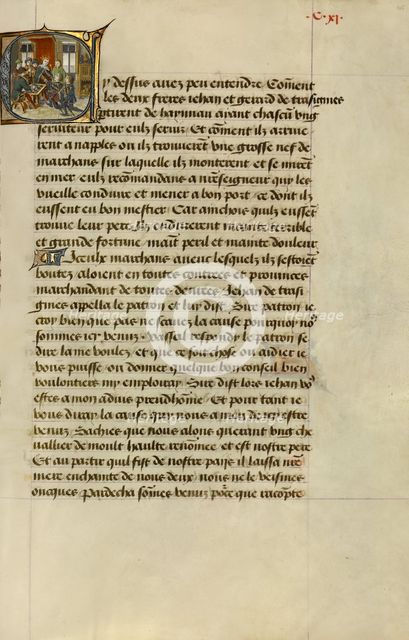 ·C·xj·
Cy dessus avez peu entendre Com̃ent
les deux freres iehan et gerard de trasignies
ptirent de haynnau ayant chascũ vng
serviteur pour eulz servir Et com̃ent ilz arrive
rent a napples ou ilz trouverẽt vne grosse nef de
marchans sur laquelle ilz monterent et se mirẽt
en mer eulz recõmandans a nr̃eseigneur quy les
vueille conduire et mener a bon port ce dont ilz
eussent eu bon mestier Car ainchois quilz eussẽt
trouve leur pere ilz endurerẽt mainte terrible
et grande fortune maĩt peril et mainte douleur
Iceulx marchans avecq lesquelz ilz sestoiẽt
boutez aloient en toutes contrees et provinces
marchandant de toutes denrees Iehan de trasi
gnies apella le patron et luy dist Sire patron ie
croy bien que pas ne scavez la cause pourquoy no9
sommes icy venus Vassal respondy le patron se
dire la me voulez et que ce soit chose ou aidier ie
vous puisse ou donner quelque bon conseil bien
voulentiers my employray Sire dist lors iehan vo9
estes a mon advis preudhõme Et pour tant ie
vous diray la cause quy nous a meu de cy estre
venus Sachies que nous alons querant vng che
vallier de moult haulte renõmee et est nostre pere
Et au partir quil fist de nostre pays il laissa nr̃e
mere enchainte de nous deux nous ne le veismes
oncques Pardecha sõmes venus põrce que racompte
heritage
Heritage